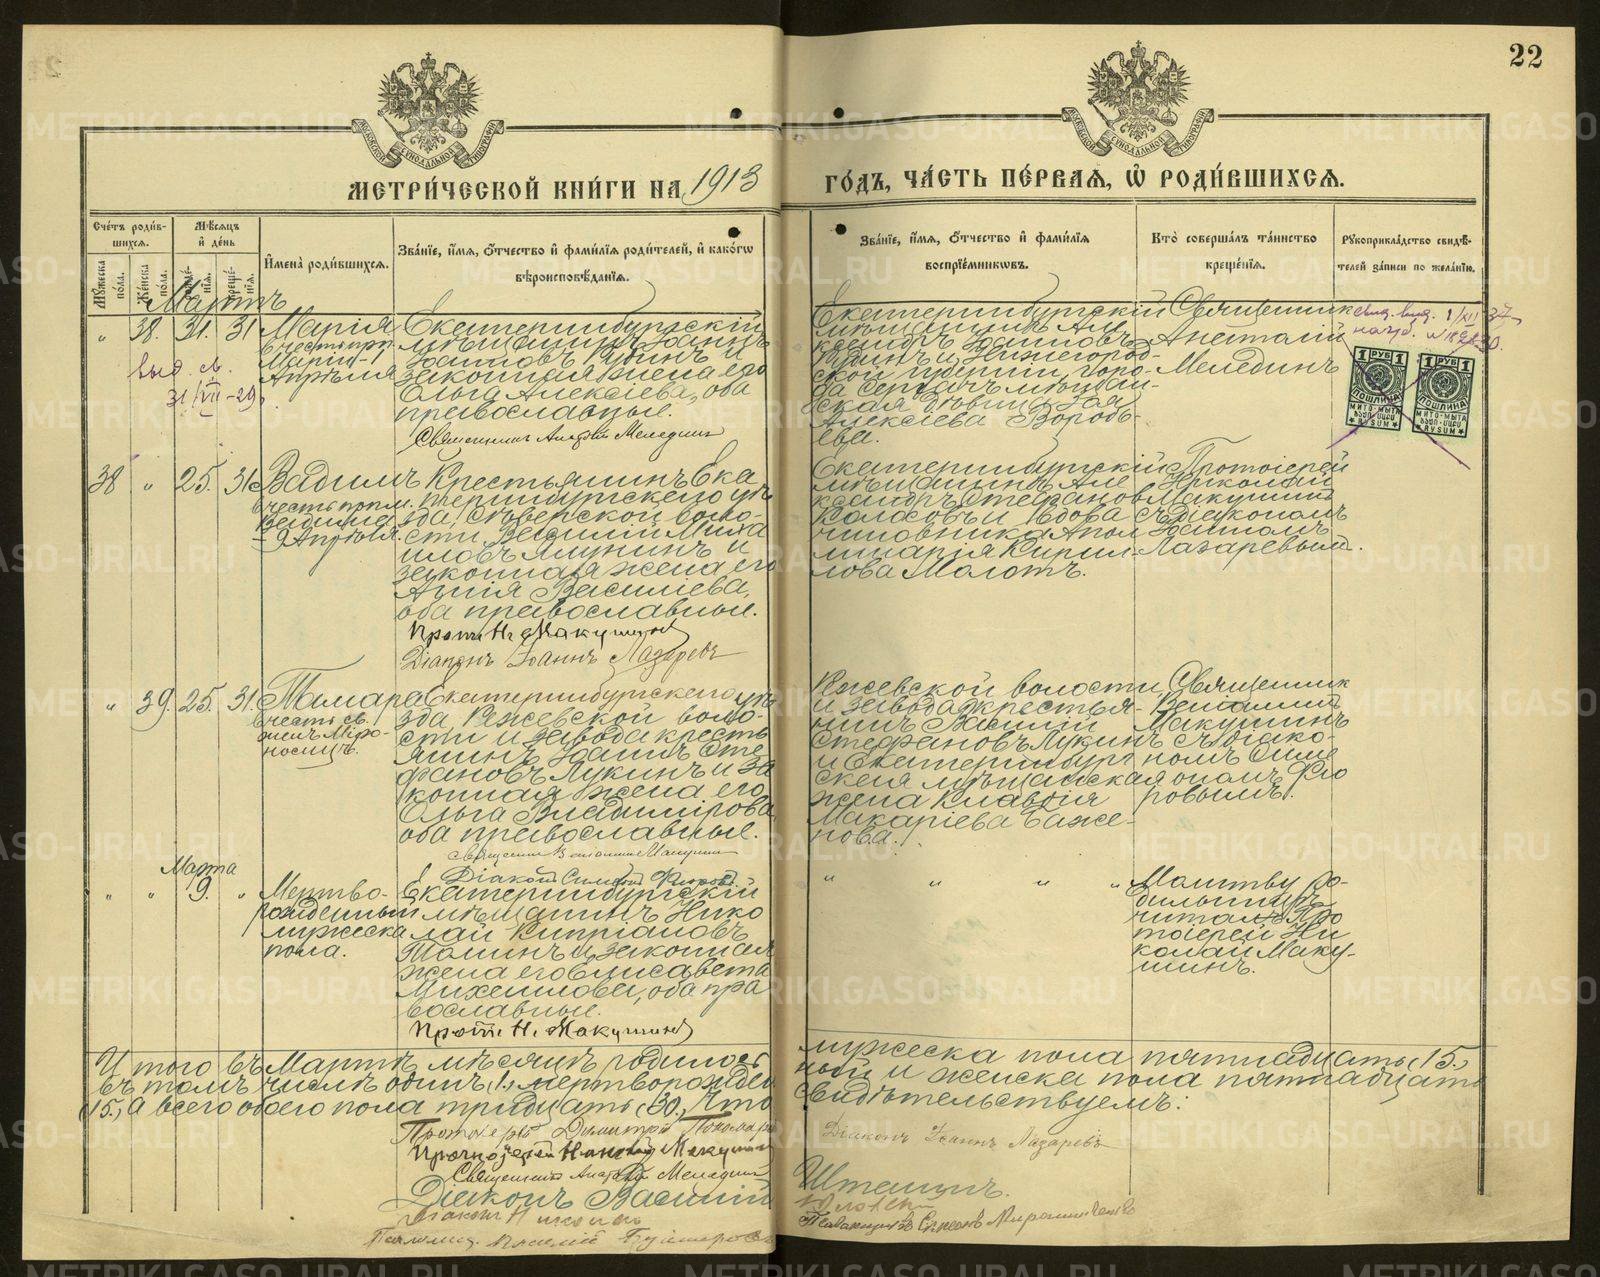 22
МЕТРИ́ЧЕСКОЙ КНИ́ГИ НА 1913 ГО́ДЪ, ЧА́СТЬ ПЕ́РВАЯ, Ѡ҆ РОДИ́ВШИХСЯ.
Сче́тъ роди́в-
шихся.
Мѣ́сяцъ
и҆ де́нь
Му́жеска по́ла.
Же́нска по́ла.
рожде́-
нїя.
креще́-
нїя.
И҆мена̀ роди́вшихся.
Зва́нїе, и҆́мя, ѻ҆́тчество и҆ фами́лїя роди́телей, и҆ како́гѡ
вѣроисповѣ́данїя.
Зва́нїе, и҆́мя, ѻ҆́тчество и҆ фами́лїя
воспрїе́мниковъ.
Кто̀ соверша́лъ та́инство
креще́нїя.
Рꙋкоприкла́дство свидѣ́-
телей за́писи по жела́нїю.
Мартъ
" 38. 31. 31
Марія
въ честь прп.
Маріи - 1
Апрѣля
выд. св.
31/VII-29.
Екатеринбургскій
мѣщанинъ Іоаннъ
Іоанновъ
и
законная жена его
Ольга Алексѣева, оба
православные.
Священникъ Анатолій Мелединъ
Екатеринбургскій
мѣщанинъ Але
ксандръ Іоанновъ
и Нижегород-
ской губерніи, горо-
да Сергачъ мѣщан-
ская дѣвица Зоя
Алексѣева Воробь-
ева.
Священникъ
Анатолій
Мелединъ
1 РУБ 1
ПОШЛИНА
МИТО·МЫТА
RYSUM
1 РУБ 1
ПОШЛИНА
МИТО·МЫТА
RYSUM
38 " 25. 31.
Вадимъ
въ честь прпм.
Вадима
- 9 Апрѣля.
Крестьянинъ Ека
теринбургскаго уѣ
зда, Сѣверской воло-
сти Василій Миха
иловъ Ямунинъ и
законная жена его
Анна Васильева,
оба православные.
Прот. Н. Макушинъ
Діаконъ Іоаннъ Лазаревъ
Екатеринбургскій
мѣщанинъ Але
ксандръ Стефановъ
Колосовъ и вдова
чиновника Апол
линарія Кирил-
лова Молотъ.
Протоіерей
Николай
Макушинъ
съ діакономъ
Іоанномъ
Лазаревымъ.
" 39. 25. 31.
Тамара
въ честь св.
женъ Мѵро-
носицъ.
Екатеринбургскаго уѣ
зда, Ревдинской воло-
сти и завода кресть
янинъ Іоаннъ Сте
фановъ Лукинъ и за
конная жена его
Ольга Владимірова,
оба православные.
Священникъ Веніаминъ Макушинъ
Діаконъ Симеонъ Флоровъ.
волости
и завода крестья-
нинъ Василій
Стефановъ Лукинъ
и Екатеринбург
ская мѣщанская
жена Клавдія
Макаріева Баже-
нова.
Священникъ
Веніаминъ
Макушинъ
съ діако-
номъ Симе
ономъ Фло
ровымъ.
Марта
" " 9. "
Мертво-
рожденный
мужеска
пола.
Екатеринбургскій
мѣщанинъ Нико
лай Кипріановъ
Толинъ и законная
жена его Елисавета
Михаилова, оба пра
вославные.
Прот. Н. Макушинъ
" " " "
Молитву ро-
дильницѣ
читалъ Про
тоіерей Ни
колай Маку-
шинъ.
Итого въ Мартѣ мѣсяцѣ родилось мужеска пола пятнадцать (15.)
въ томъ числѣ одинъ (1.) мертворожден ный и женска пола пятнадцать
(15.), а всего обоего пола тридцать (30.), Что свидѣтельствуемъ:
Протоіерей Димитрій
Протоіерей Николай Макушинъ
Священникъ Анатолій Мелединъ
Діаконъ Василій
Діаконъ Іоаннъ Лазаревъ
Діаконъ Николай
Псаломщ.
Псаломщикъ Симеонъ Мирошниченко
METRIKI.GASO-URAL.RU